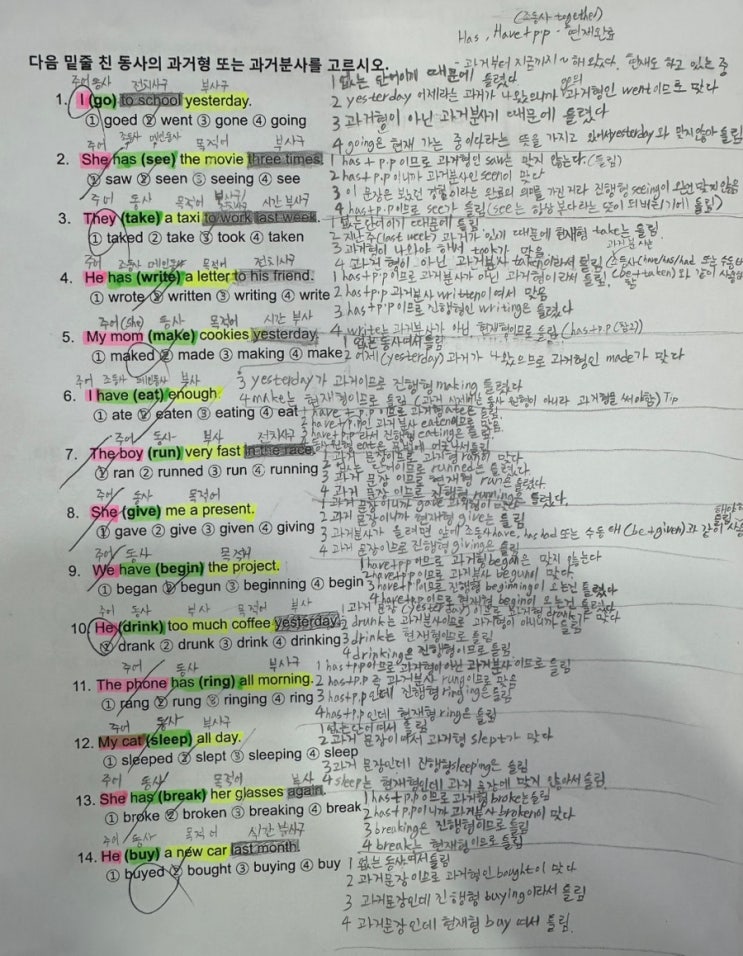 (조동사 together)
Has, Have+p.p - 현재완료
다음 밑줄 친 동사의 과거형 또는 과거분사를 고르시오.
- 과거부터 지금까지 ~해 왔다. 현재도 하고 있는 중
주어 동사 전치사구 부사구
1 없는 단어이기 때문에 틀렸다
1. I (go) to school yesterday.
2 yesterday 어제라는 과거가 나왔으니까 과거형인 went이므로 맞다
① goed ② went ③ gone ④ going
3 과거형이 아닌 과거분사기 때문에 틀렸다
4 going은 현재 가는 중이다라는 뜻을 가지고 있어서 yesterday와 맞지않아 틀림
주어 조동사 메인동사 목적어 부사구
2. She has (see) the movie three times.
1 has+p.p이므로 과거형인 saw는 맞지 않는다. (틀림)
① saw ② seen ③ seeing ④ see
2 has+p.p이니까 과거분사인 seen이 맞다
3 이 문장은 보았던 경험이라는 완료의 의미를 가진거라 진행형 seeing이 오면 맞지않음
4 has+p.p이므로 see가 틀림
주어 동사 목적어 부사구 시간 부사구
3. They (take) a taxi to work last week.
1 없는 단어이기 때문에 틀림
① taked ② take ③ took ④ taken
2 지난주(last week) 과거가 있기 때문에 현재형 take는 틀림
3 과거형이 나와야 하면서 took가 맞음
4 과거형이 아닌 과거분사 taken이라서 틀림
주어 조동사 메인동사 목적어 전치사구
4. He has (write) a letter to his friend.
1 has+p.p이므로 과거분사가 아닌 과거형이라서 틀림
① wrote ② written ③ writing ④ write
2 has+p.p 과거분사 written이여서 맞음
3 has+p.p이므로 진행형인 writing은 틀렸다
주어(she) 동사 목적어 시간 부사
4 write는 과거분사가 아닌 현재형이므로 틀림
5. My mom (make) cookies yesterday.
1 없는 동사여서 틀림
① maked ② made ③ making ④ make
2 어제(yesterday) 과거가 나왔으므로 과거형인 made가 맞다
주어 조동사 메인동사 부사
3 yesterday가 과거이므로 진행형 making 틀렸다
6. I have (eat) enough.
4 make는 현재형이므로 틀림 (과거 시제에는 동사 원형이 아니라 과거형을 써야함) Tip
① ate ② eaten ③ eating ④ eat
1 have+p.p이므로 과거형 ate은 틀림
주어 동사 부사 전치사구
7. The boy (run) very fast in the race.
1 과거 문장이므로 과거형 ran이 맞다
① ran ② runned ③ run ④ running
2 없는 단어이므로 runned는 틀렸다
3 과거 문장 이므로 현재형 run은 틀렸다
4 과거 문장 이므로 진행형 running은 틀렸다.
주어 동사 목적어
8. She (give) me a present.
① gave ② give ③ given ④ giving
2 과거 문장이니까 현재형 give는 틀림
4 과거 문장이므로 진행형 giving은 틀림
주어 동사 목적어
9. We have (begin) the project.
1 have+p.p이므로 과거형 began은 맞지 않는다
① began ② begun ③ beginning ④ begin
2 have+p.p이므로 과거분사 begun이 맞다.
3 have+p.p이므로 진행형 beginning이 오는건 틀렸다
4 have+p.p이므로 현재형 begin이 오는건 틀렸다
주어 동사 부사 목적어 부사
10. He (drink) too much coffee yesterday.
① drank ② drunk ③ drink ④ drinking
2 drunk는 과거분사이므로 과거형이 아니니까 틀림
3 drink는 현재형이므로 틀림
4 drinking은 진행형이므로 틀림.
주어 동사 부사구
11. The phone has (ring) all morning.
1 has+p.p이므로 과거형이 아닌 과거분사이므로 틀림
① rang ② rung ③ ringing ④ ring
2 has+p.p 즉 과거분사 rung이므로 맞음
3 has+p.p인데 진행형 ringing은 틀림
4 has+p.p인데 현재형 ring은 틀림
주어 동사 부사구
12. My cat (sleep) all day.
1 없는 단어여서 틀림
① sleeped ② slept ③ sleeping ④ sleep
2 과거 문장이여서 과거형 slept가 맞다
3 과거 문장인데 진행형 sleeping은 틀림
주어 동사 목적어 부사
4 sleep는 현재형인데 과거 문장에 맞지 않아서 틀림.
13. She has (break) her glasses again.
1 has+p.p이므로 과거형 broke는 틀림
① broke ② broken ③ breaking ④ break
2 has+p.p이니까 과거분사 broken이 맞다
3 breaking은 진행형이므로 틀림
주어 동사 목적어 시간 부사구
4 break는 현재형이므로 틀림
14. He (buy) a new car last month.
1 없는 동사여서 틀림
① buyed ② bought ③ buying ④ buy
2 과거문장이므로 과거형인 bought이 맞다
3 과거문장인데 진행형 buying이라서 틀림
4 과거문장인데 현재형 buy 여서 틀림.